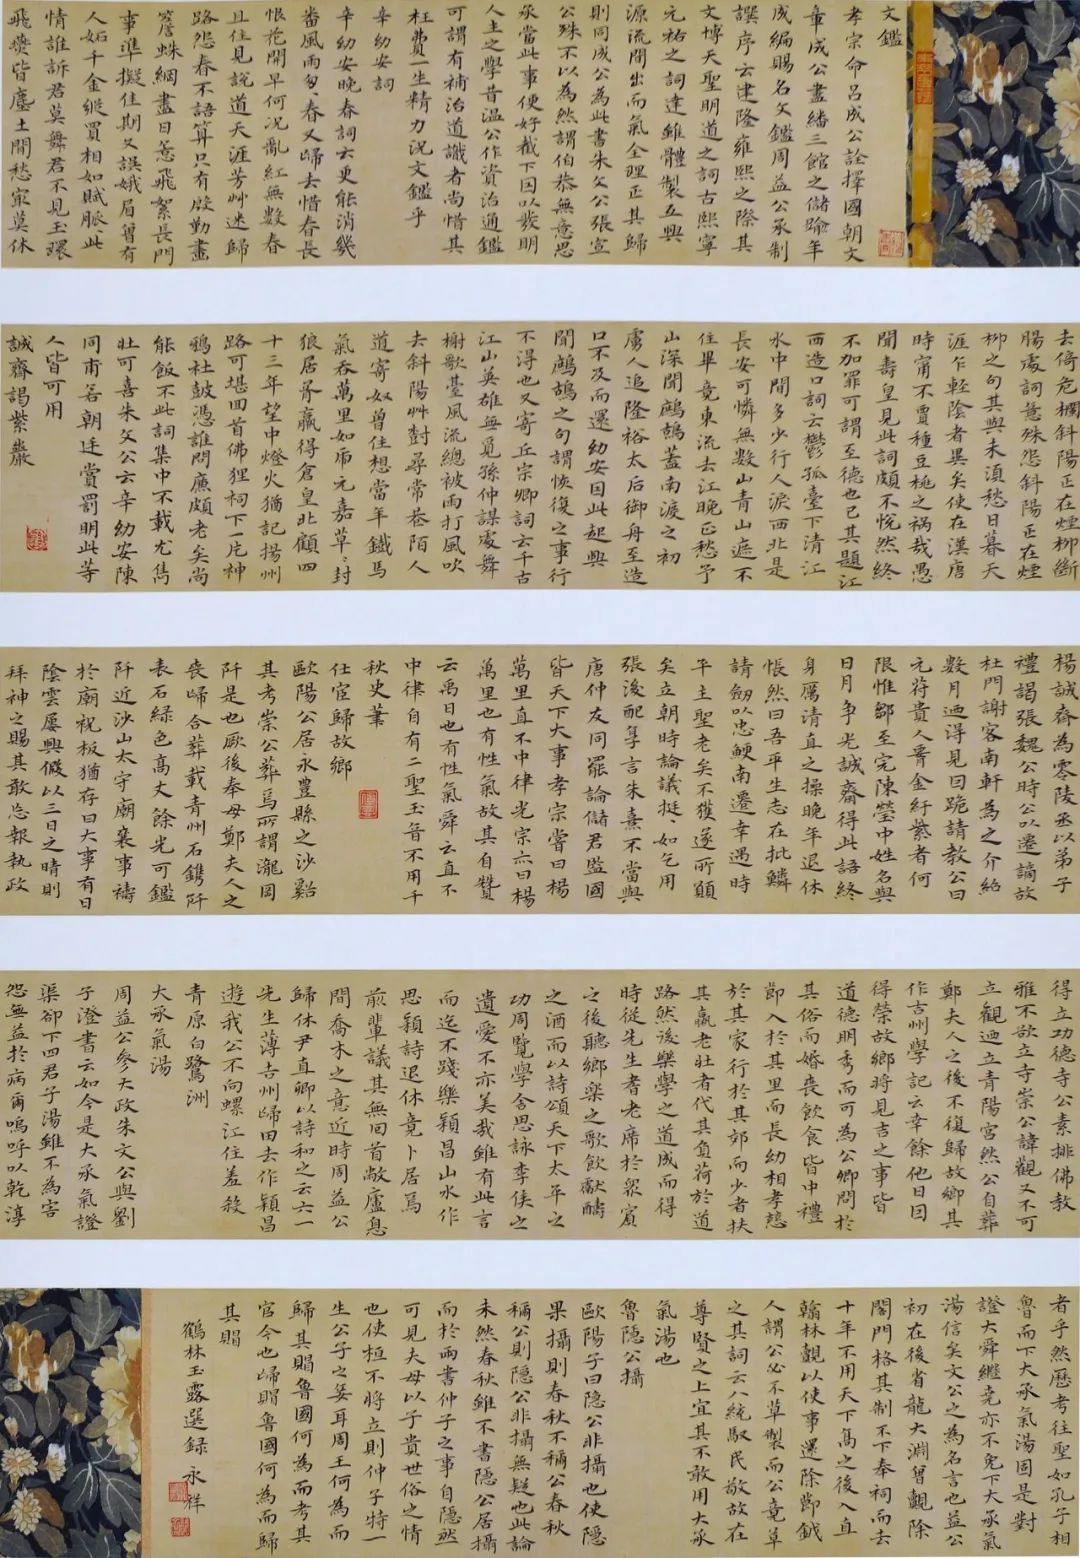 文鑑
孝宗命呂成公詮擇國朝文
章成公盡繙三館之儲踰年
成編賜名文鑑周益公承制
譔序云建隆雍熙之際其
文博天聖明道之詞古熙寧
元祐之詞達雖體製互興
源流間出而氣全理正其歸
則同成公為此書朱文公張宣
公殊不以為然謂伯恭無意思
承當此事便好截下因以發明
人主之學昔溫公作資治通鑑
可謂有補治道識者尚惜其
枉費一生精力況文鑑乎
辛幼安詞
辛幼安晚春詞云更能消幾
番風雨匆匆春又歸去惜春長
恨花開早何況亂紅無數春
且住見說道天涯芳艸迷歸
路怨春不語算只有殷勤畫
簷蛛網盡日惹飛絮長門
事準擬佳期又誤娥眉曾有
人妬千金縱買相如賦脈脈此
情誰訴君莫舞君不見玉環
飛燕皆塵土閒愁最莫休
去倚危欄斜陽正在煙柳斷
腸處詞意殊怨斜陽正在煙
柳之句其與未須愁日暮天
涯乍輕陰者異矣使在漢唐
時甯不賈種豆種桃之禍哉愚
聞壽皇見此詞頗不悅然終
不加罪可謂至德也已其題江
西造口詞云鬱孤臺下清江
水中間多少行人淚西北是
長安可憐無數山青山遮不
住畢竟東流去江晚正愁予
山深聞鷓鴣蓋南渡之初
虜人追隆裕太后御舟至造
口不及而還幼安因此起興
聞鷓鴣之句謂恢復之事行
不得也又寄丘宗卿詞云千古
江山英雄無覓孫仲謀處舞
榭歌臺風流總被雨打風吹
去斜陽艸對尋常巷陌人
道寄奴曾住想當年鐵馬
氣吞萬里如虎元嘉草草封
狼居胥贏得倉皇北顧四
十三年望中燈火猶記揚州
路可堪回首佛狸祠下一片神
鴉社鼓憑誰問廉頗老矣尚
能飯不此詞集中不載尤雋
壯可喜朱文公云辛幼安陳
同甫若朝廷賞罰明此等
人皆可用
誠齋謁紫巖
楊誠齋為零陵丞以弟子
禮謁張魏公時公以遷謫故
杜門謝客南軒為之介紹
數月迺得見因跪請教公曰
元符貴人脊金紆紫者何
限惟鄒至完陳瑩中姓名與
日月爭光誠齋得此語終
身厲清直之操晚年退休
悵然曰吾平生志在批鱗
請劍以忠鯁南遷幸遇時
平主聖老矣不獲遂所願
矣立朝時論議挺挺如乞用
張浚配享言朱熹不當與
唐仲友同罷論儲君監國
皆天下大事孝宗嘗曰楊
萬里直不中律光宗亦曰楊
萬里也有性氣故其自贊
云禹曰也有性氣舜云直不
中律自有二聖玉音不用千
秋史筆
仕宦歸故鄉
歐陽公居永豐縣之沙谿
其考崇公葬焉所謂瀧岡
阡是也厥後奉母鄭夫人之
喪歸合葬載青州石鐫阡
表石綠色高丈餘光可鑑
阡近沙山太守廟襄事禱
於廟祝板猶存曰大事有日
陰雲屢興儻以三日之晴則
拜神之賜其敢忘報執政
得立功德寺公素排佛教
雅不欲立寺崇公諱觀又不可
立觀迺立青陽宮然公自葬
鄭夫人之後不復歸故鄉其
作吉州學記云幸餘他日因
得榮故鄉將見吉之事皆
道德明秀而可為公卿問於
其俗而婚喪飲食皆中禮
節入於其里而長幼相孝慈
於其家行於其郊而少者扶
其羸老壯者代其負荷於道
路然後樂學之道成而得
時從先生耆老席於眾賓
之後聽鄉樂之歌飲獻酬
之酒而以詩頌天下太平之
功周覽學舍思詠李侯之
遺愛不亦美哉雖有此言
而迄不踐樂穎昌山水作
思穎詩退休竟卜居焉
前輩議其無回首敝廬息
間喬木之意近時周益公
歸休尹直卿以詩和之云六一
先生薄吉州歸田去作穎昌
遊我公不向螺江住羞殺
青原白鷺洲
大承氣湯
周益公參大政朱文公與劉
子澄書云如今是大承氣證
渠卻下四君子湯雖不為害
恐無益於病爾嗚呼以乾淳
者乎然歷考往聖如孔子相
魯而下大承氣湯固是對
證大舜繼堯亦不免下大承氣
湯信矣文公之為名言也益公
初在後省龍大淵曾覿除
閤門格其制不下奉祠而去
十年不用天下高之後入直
翰林覿以使事還除節鉞
人謂公必不草製而公竟草
之其詞云八統馭民敬故在
尊賢之上宜其不敢用大承
氣湯也
魯隱公攝
歐陽子曰隱公非攝也使隱
果攝則春秋不稱公春秋
稱公則隱公非攝無疑也此論
未然春秋雖不書隱公居攝
而於兩書仲子之事自隱然
可見夫母以子貴世俗之情
也使桓不將立則仲子特一
生公子之妾耳周王何為而
歸其賵魯國何為而考其
宮今也歸賵魯國何為而歸
其賵
鶴林玉露選錄 永祥